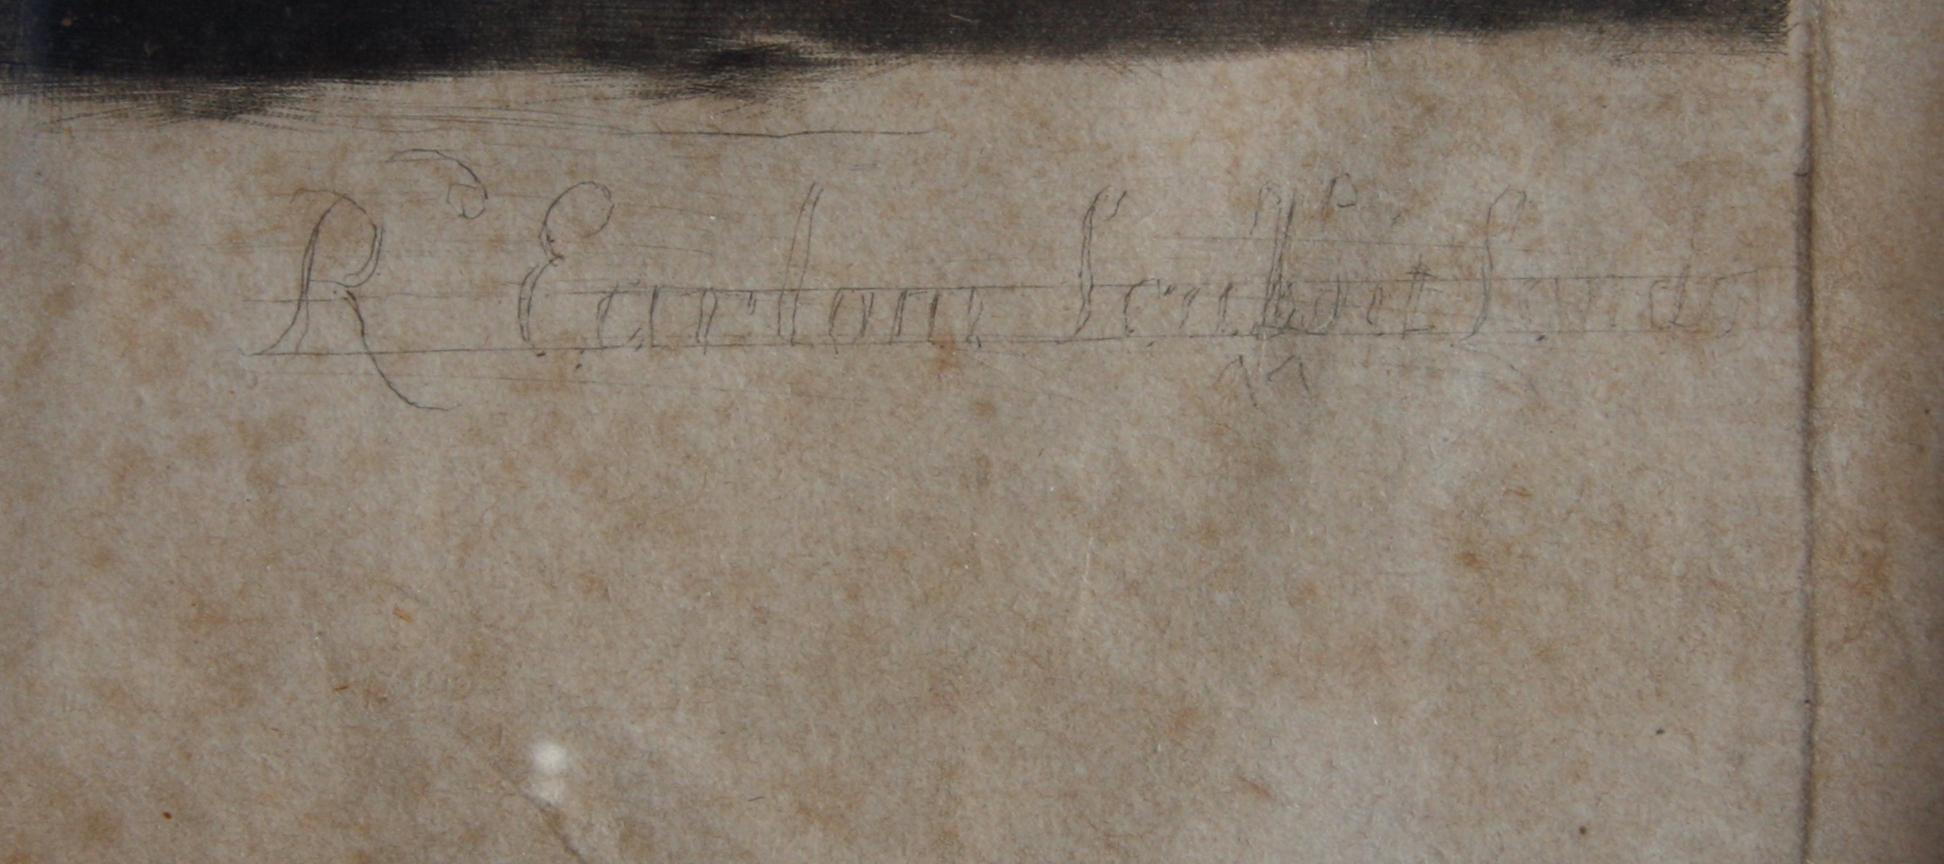 R^d Earlom Sculpsit Londo